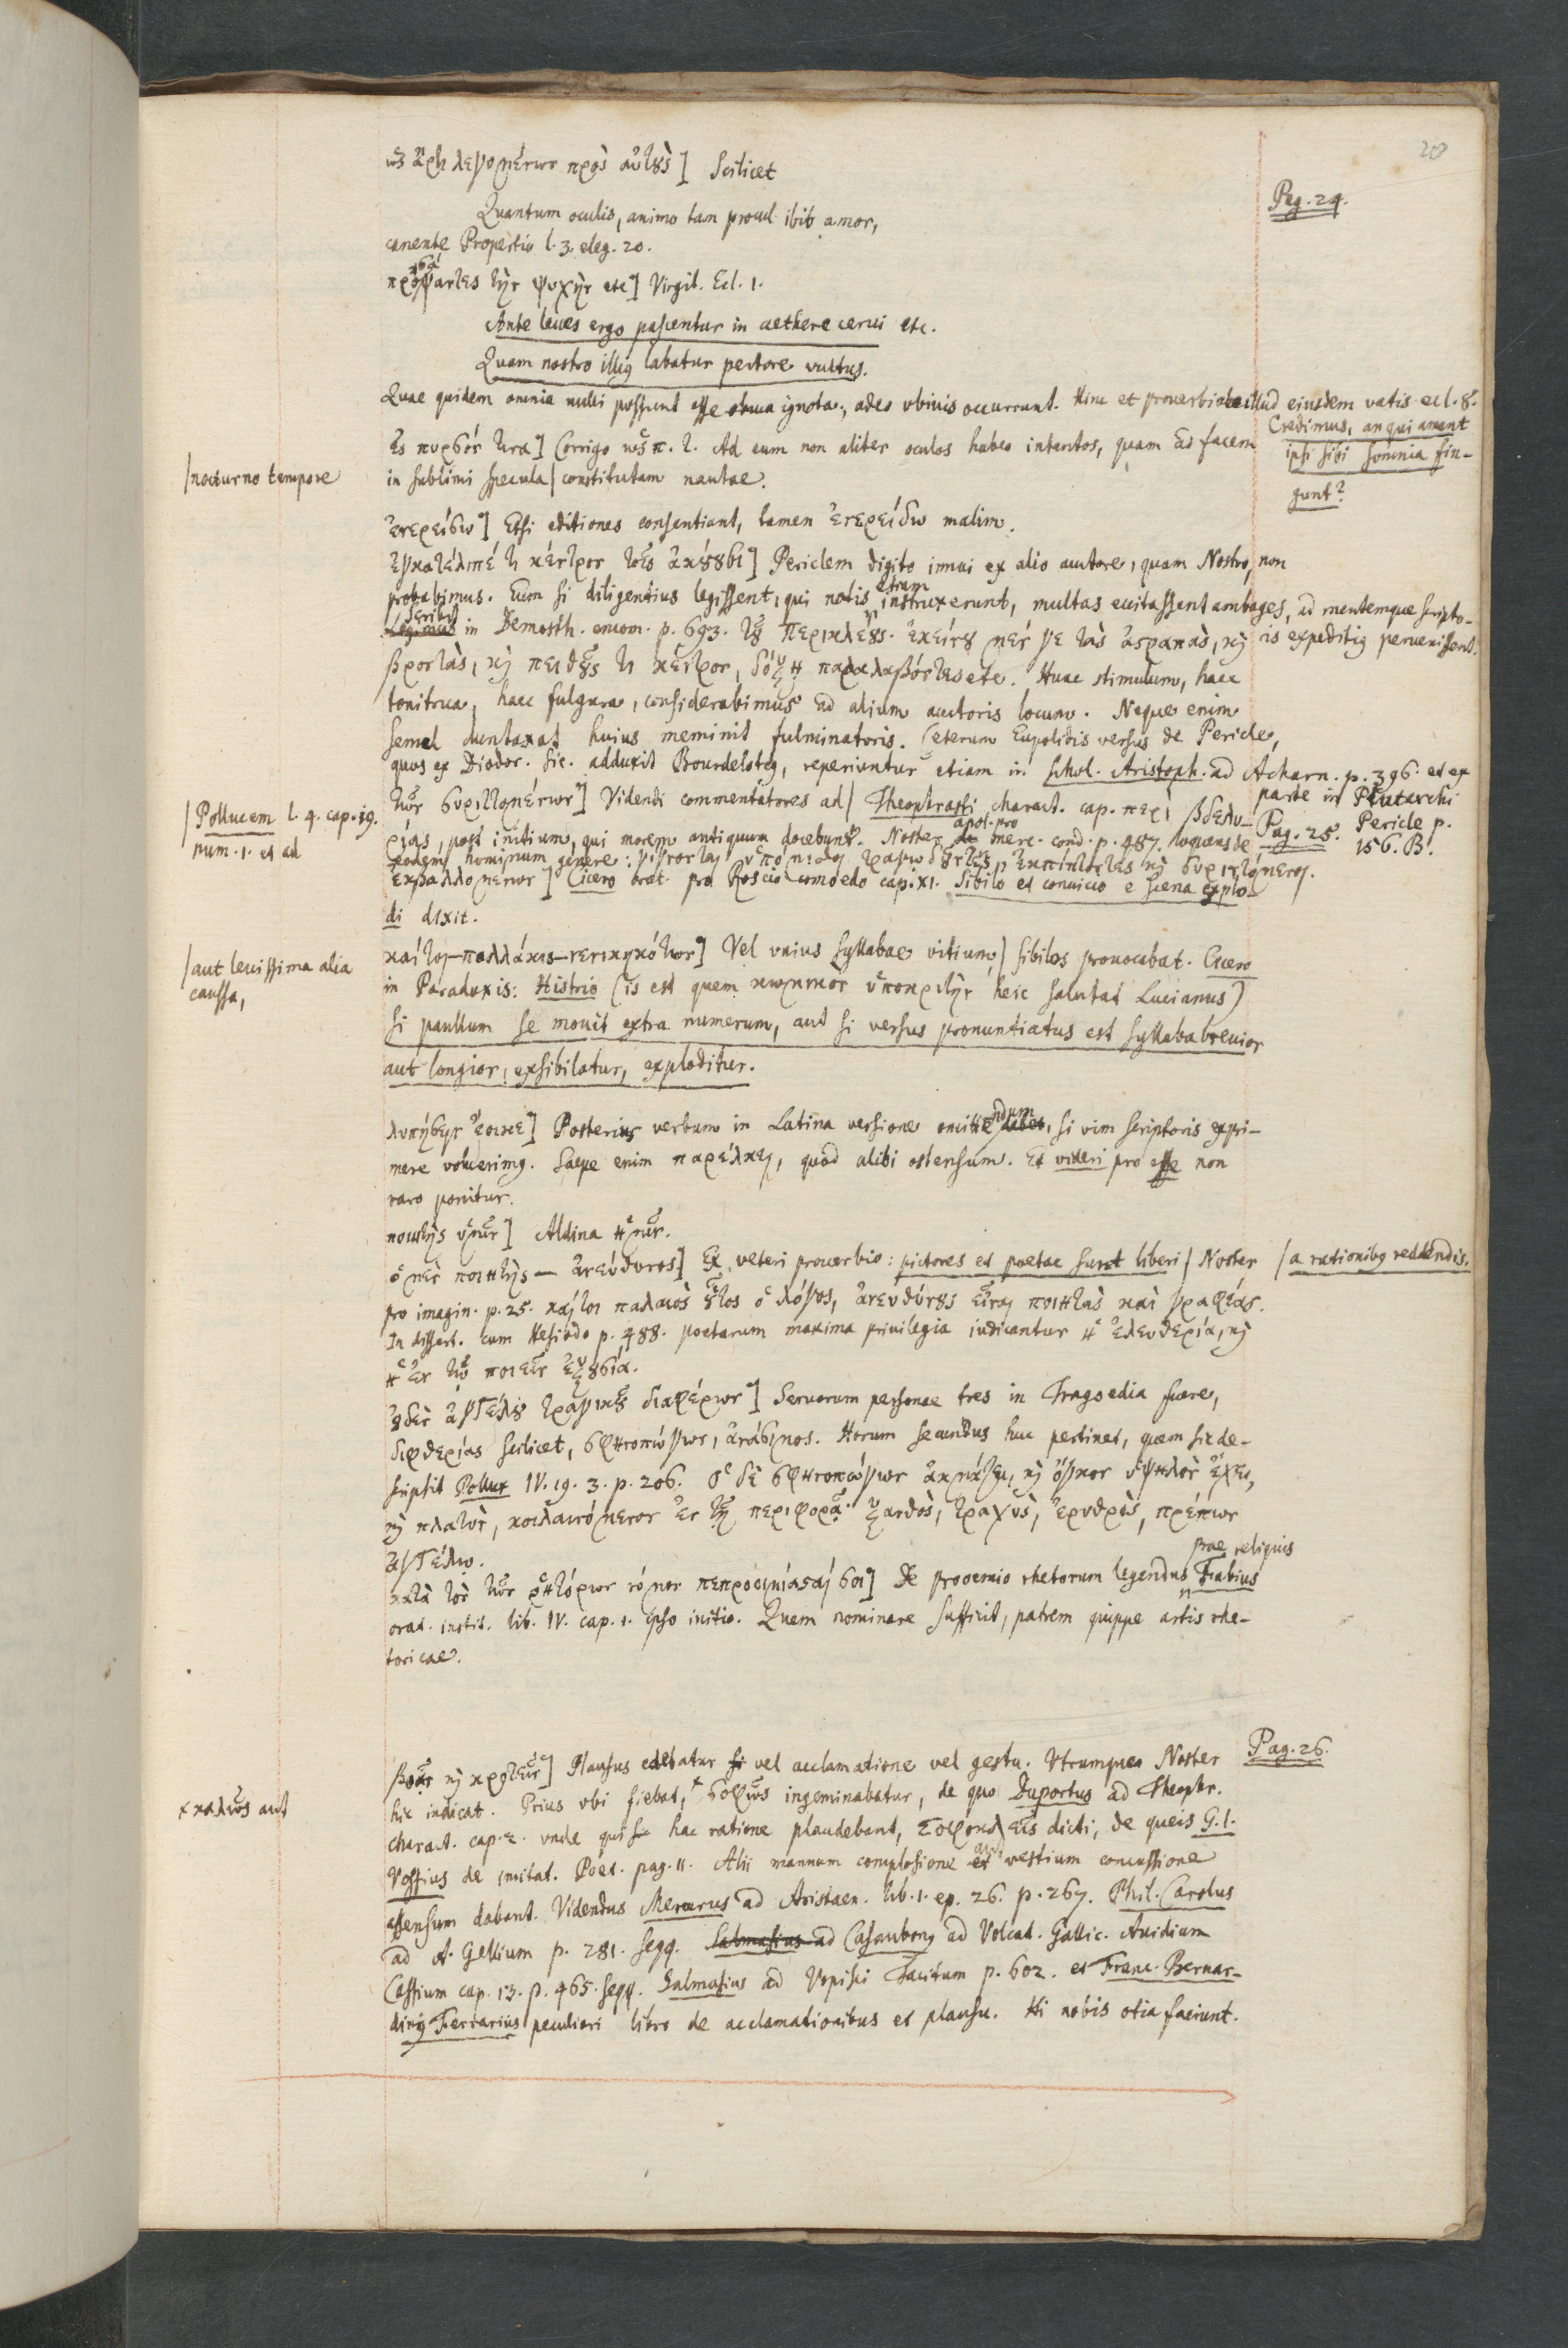 20
Pag. 24.
ὡς ἄρτι λεγομένων πρὸς αὐτοὺς] Scilicet
Quantum oculis, animo tam procul ibit amor,
canente Propertio l. 3. eleg. 20.
τὴν ψυχὴν etc] Virgil. Ecl. 1.
Ante leues ergo pascentur in aethere cerui etc.
Quam nostro illius labatur pectore vultus.
Quae quidem omnia nulli possunt esse ignota, adeo vbiuis occurrunt. Hinc et prouerbiale illud eiusdem vatis ecl. 8.
Credimus, an qui amant
ipsi sibi somnia fin-
gunt?
ἐς πυρσόν τινα] Corrigo ὡς π. τ. Ad eum non aliter oculos habeo intentos, quam ad facem
/nocturno tempore
in sublimi specula / constitutam nautae.
ἐνερείσω] Etsi editiones consentiant, tamen ἐνερείδω malim.
ἐγκατέλιπέ τι κέντρον τοῖς ἀκούουσι] Periclem digito innui ex alio auctore, quam Nostro, non
probabimus. Eum si diligentius legissent, qui notis etiam instruxerunt, multas euitassent ambages, ad mentemque scripto-
ris expeditius peruenissent.
scribit in Demosth. encom. p. 693. τοῦ Περικλέους. ἐκείνου μέν γε τὰς ἀστραπὰς, καὶ
βροντὰς, καὶ πειθοῦς τι κέντρον, δόξῃ παραλαβόντες etc. Hunc stimulum, haec
tonitrua, haec fulgura, considerabimus ad alium auctoris locum. Neque enim
semel duntaxat huius meminit fulminatoris. Ceterum Eupolidis versus de Pericle,
quos ex Diodor. Sic. adduxit Bourdelotius, reperiuntur etiam in Schol. Aristoph. ad Acharn. p. 396. et ex
parte in Plutarchi
Pericle p.
156. B.
Pag. 25.
τῶν συριττομένων] Videndi commentatores ad / Theophrasti charact. cap. περὶ βδελυ-
/Pollucem l. 4. cap. 19.
num. 1. et ad
ρίας, post initium, qui morem antiquum docebunt. Noster apol. pro merc. cond. p. 487. loquens de
hominum genere: γίγνονται ὑπόμισθοι τραγῳδοῦντες, ἐκπίπτοντες καὶ συριττόμενοι.
ἐκβαλλομένων] Cicero orat. pro Roscio comoedo cap. XI. Sibilo et conuicio e scena explo-
di dixit.
καίτοι–πολλάκις–νενικηκότων] Vel vnius syllabae vitium, / sibilos prouocabat. Cicero
/aut leuissima alia
caussa,
in Paradoxis: Histrio (is est quem κωμικὸν ὑποκριτὴν heic salutat Lucianus)
si paullum se mouit extra numerum, aut si versus pronuntiatus est syllaba breuior
aut longior, exsibilatur, exploditur.
λυπήσειν ἔοικε] Posterius verbum in Latina versione omittendum, si vim scriptoris expri-
mere voluerimus. Saepe enim παρέλκει, quod alibi ostensum. Et videri pro esse non
raro ponitur.
ποιητὴς ὑμῖν] Aldina ἡμῖν.
ὁ μὲν ποιητὴς — ἀνεύθυνος] Ex veteri prouerbio: pictores et poetae sunt liberi / Noster
/a rationibus reddendis.
pro imagin. p. 25. καίτοι παλαιὸς οὗτος ὁ λόγος, ἀνευθύνους εἶναι ποιητὰς καὶ γραφέας.
In dissert. cum Hesiodo p. 488. poetarum maxima priuilegia indicantur ἡ ἐλευθερία, καὶ
ἡ ἐν τῷ ποιεῖν ἐξουσία.
οὐδὲν ἀγγέλου τραγικοῦ διαφέρων] Seruorum personae tres in Tragoedia fuere,
διφθερίας scilicet, σφηνοπώγων, ἀνάσιμος. Horum secundus huc pertinet, quem sic de-
scripsit Pollux IV. 19. 3. p. 206. ὁ δὲ σφηνοπώγων ἀκμάζει, καὶ ὄγκον ὑψηλὸν ἔχει,
καὶ πλατὺν, κοιλαινόμενον ἐν τῇ περιφορᾷ. ξανθὸς, τραχὺς, ἐρυθρὸς, πρέπων
ἀγγέλῳ.
κατὰ τὸν τῶν ῥητόρων νόμον πεπροοιμιάσθαι σοι] De prooemio rhetorum legendus prae reliquis Fabius
orat. instit. lib. IV. cap. 1. ipso initio. Quem nominare sufficit, patrem quippe artis rhe-
toricae.
Pag. 26.
βοᾶν καὶ κροτεῖν] Plausus edebatur vel acclamatione vel gestu. Vtrumque Noster
hic indicat. Prius vbi fiebat, × σοφῶς ingeminabatur, de quo Duportus ad Theophr.
× καλῶς aut
charact. cap. 2. vnde qui hac ratione plaudebant, Σοφοκλεῖς dicti, de queis G. I.
Vossius de imitat. Poet. pag. 11. Alii manuum complosione aut vestium concussione
assensum dabant. Videndus Mercerus ad Aristaen. lib. 1. ep. 26. p. 267. Phil. Carolus
ad A. Gellium p. 281. seqq. Salmasius ad Casaubonus ad Volcat. Gallic. Auidium
Cassium cap. 13. p. 465. seqq. Salmasius ad Vopisci Tacitum p. 602. et Franc. Bernar-
dinus Ferrarius peculiari libro de acclamationibus et plausu. Hi nobis otia faciunt.